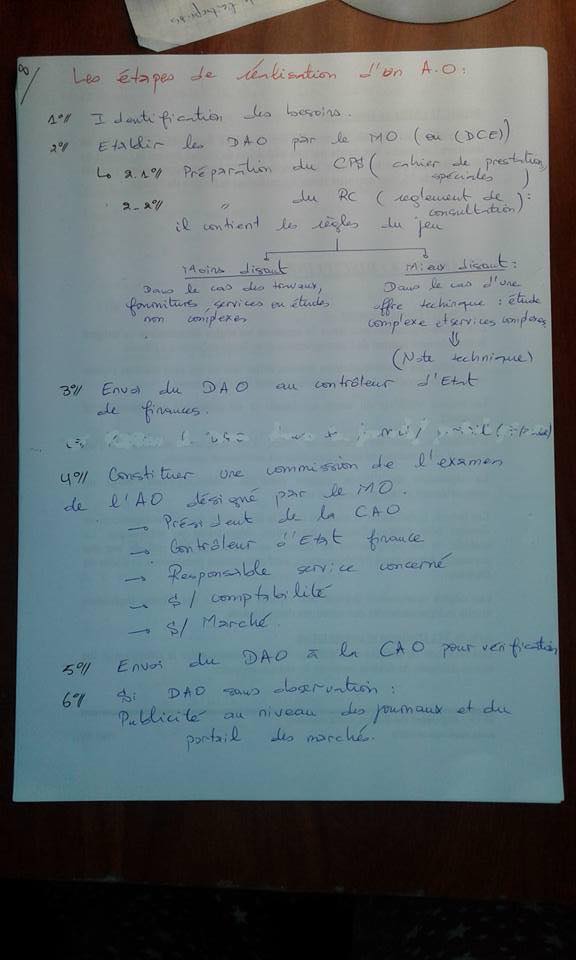 Les étapes de réalisation d'un A.O :
1°// Identification des besoins.
2°// Etablir les DAO par le MO (ou (DCE)
↳ 2.1°// Préparation du CPS (cahier de prestations
spéciales)
2-2°// " du RC (reglement de
consultation) :
il contient les règles du jeu
Moins disant
Dans le cas des travaux,
fournitures services ou études
non complexes
Mieux disant :
Dans le cas d'une
offre technique : étude
complexe et services complexes
⇓
(Note technique)
3°// Envoi du DAO au contrôleur d'Etat
de finances.
4°// Constituer une commission de l'examen
de l'AO désigné par le MO.
→ Président de la CAO
→ Contrôleur d'Etat finance
→ Responsable service concerné
→ S/ comptabilité
→ S/ Marché.
5°// Envoi du DAO à la CAO pour vérification
6°// Si DAO sans observation :
Publicité au niveau des journaux et du
portail des marchés.